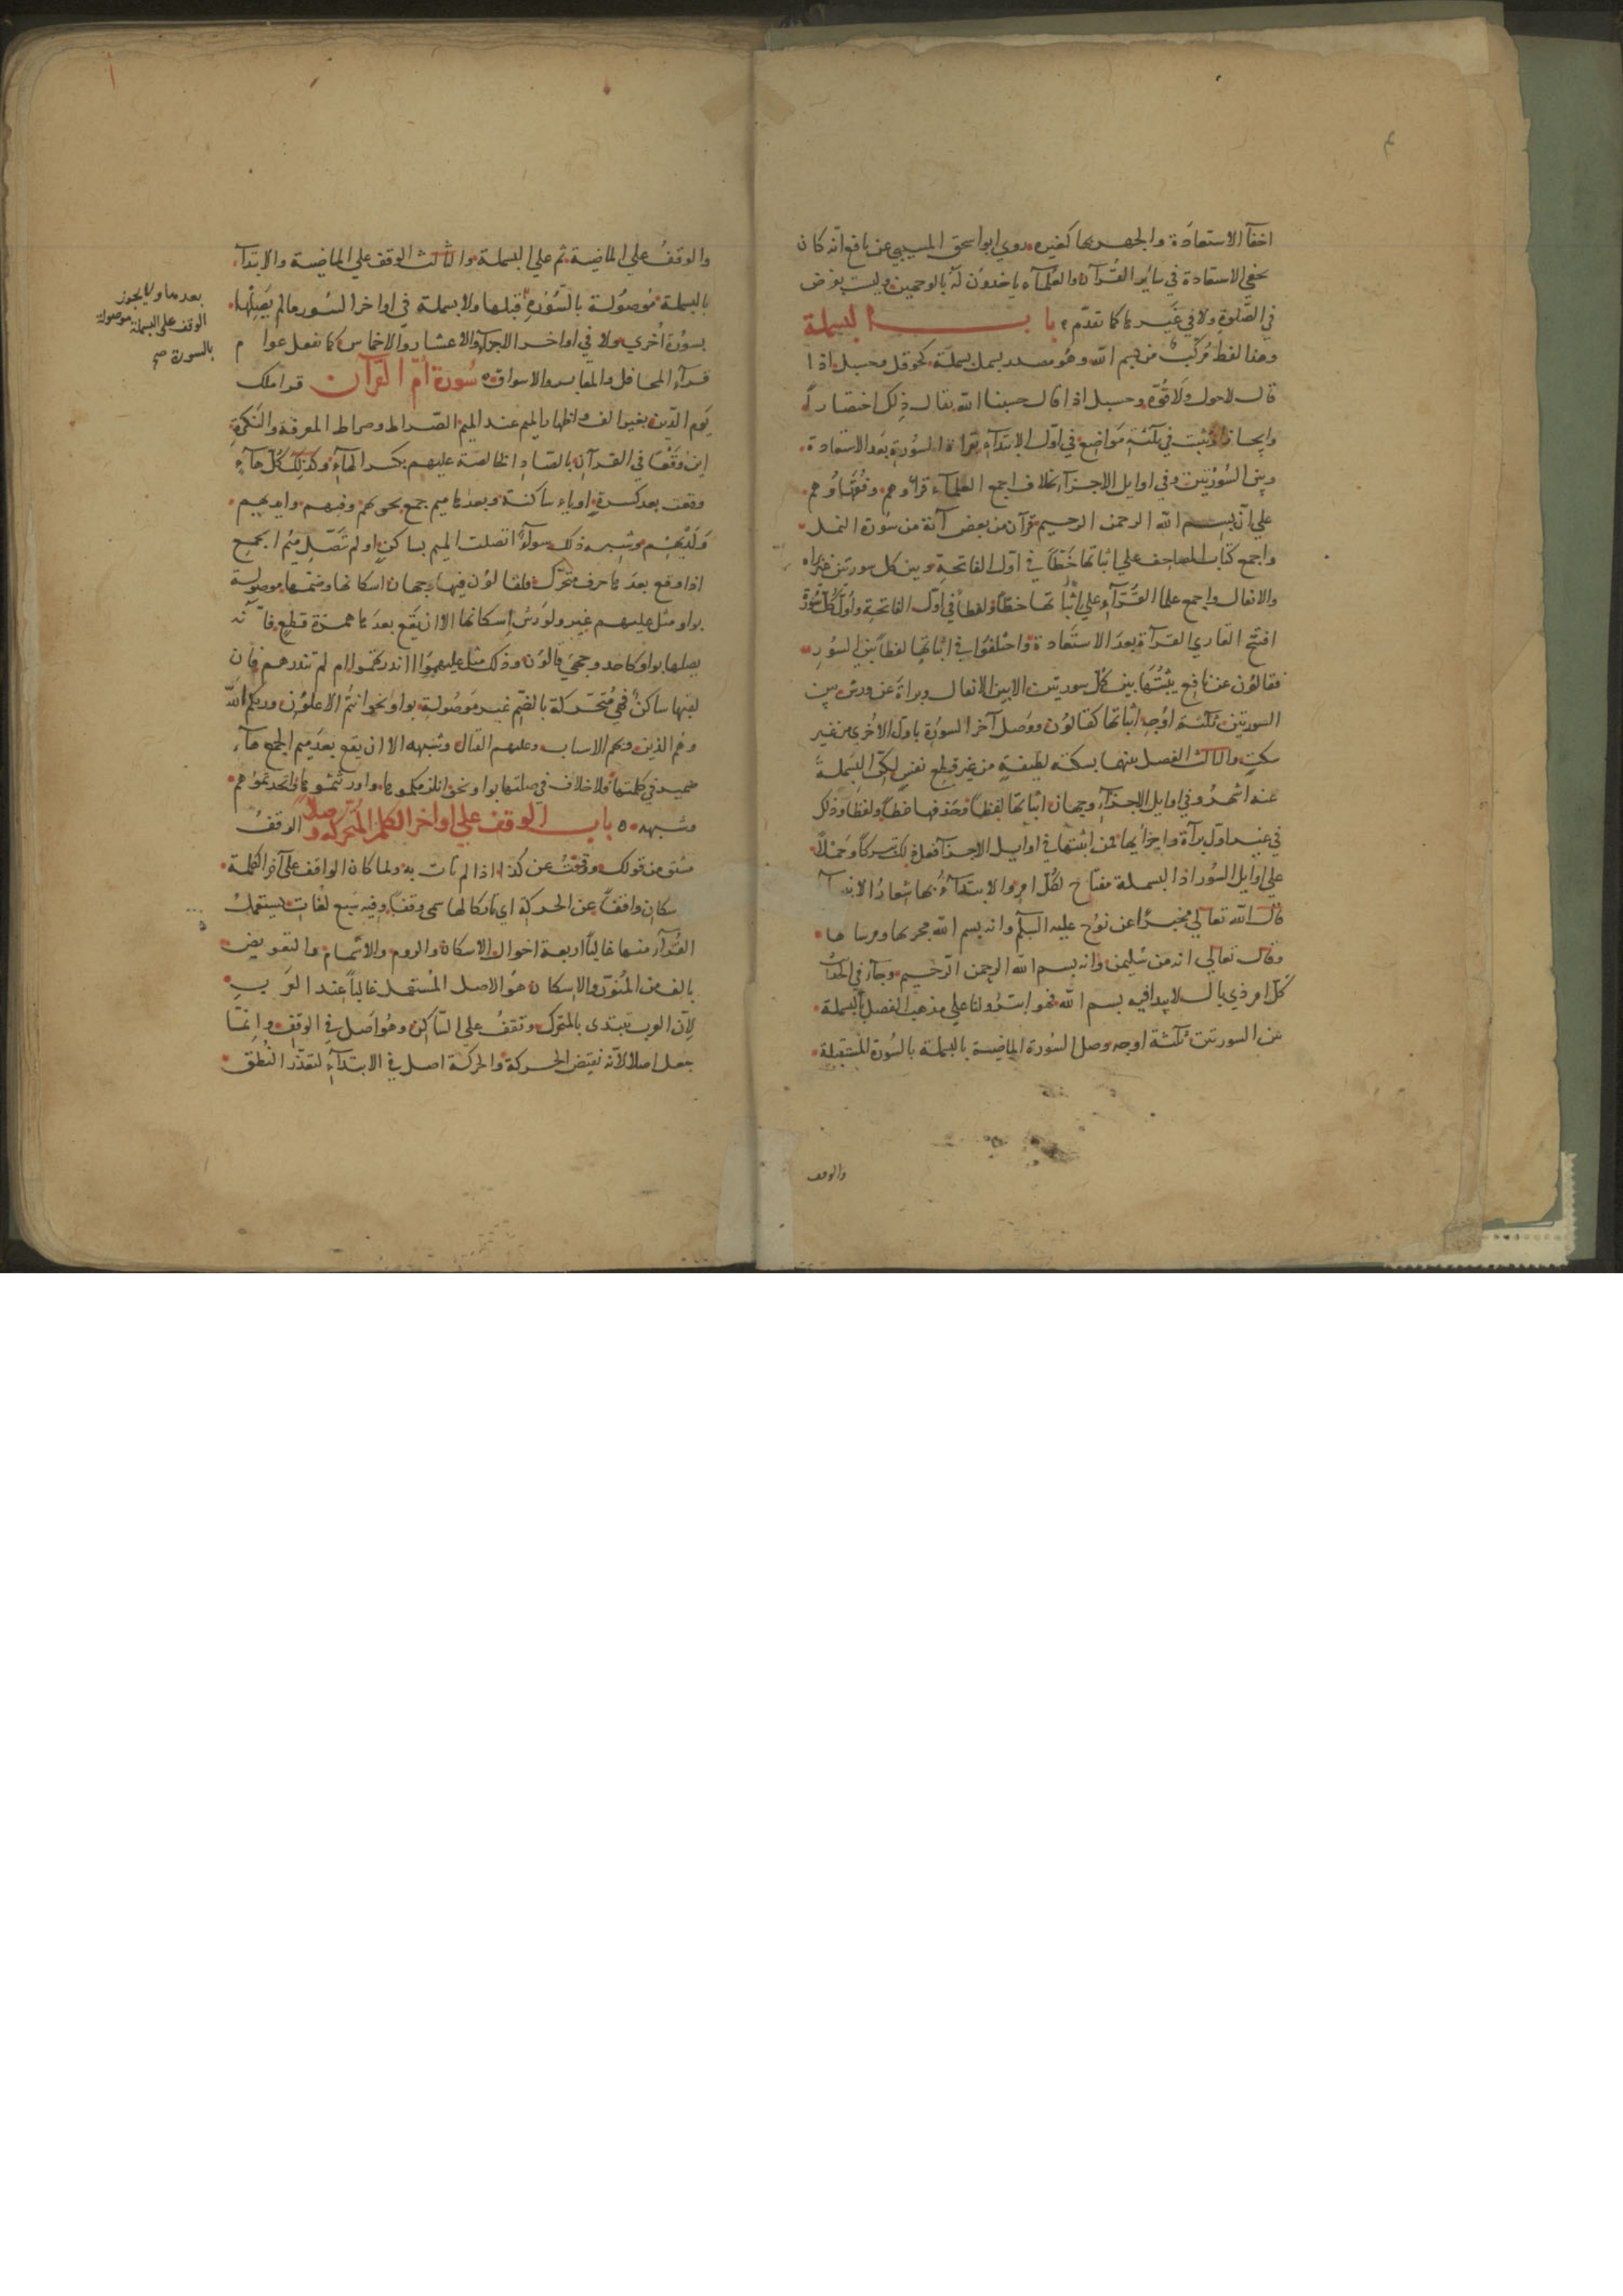 اخفآ الاستعاذة والجهر بها كغيره روي ابو اسحق المسيبي عن نافع انّه كان
يخفي الاستعاذة في سائر القُرآن والعُلمآء ياخذون لهُ بالوجهين وليست بفرض
في الصّلوة ولا في غيرها كما تقدّم باب البسملة
وهذا لفظ مُركّب من بسم الله وهُو مصدر بسمل بسملة كحوقل وحسبل اذا
قال لا حول ولا قُوّة وحسبل اذا قال حسبنا الله يقال ذلك اختصاراً
وايجازاً وتثبت في ثلثة مَواضِع في اوّل الابتدآء بقراة السُورة بعد الاستعاذة
وبين السُورتين وفي اوايل الاجزآء بخلاف اجمع العلمآء قراوهم وفقهاوُهم
علي انّ بسم الله الرحمن الرحيم قرآن من بعض آية من سُورة النمل
واجمع كتّاب المصاحف علي اثباتها خَطّاً في اوّل الفاتحة وبين كل سورتين غير براه
والانفال واجمع علما القرّآء علي اثباتها خطّاً ولفظاً في اوّل الفاتحة واوّل كلّ سُورة
افتتح القاري القرآة بعد الاستعاذة واختلفوا في اثباتها لفظاً بين السُور
فقالون عن نافع يثبتُها بين كلّ سورتين الا بين الانفال وبراة عن ورش بين
السورتين ثلثة اوجُه اثباتها كقالون ووَصل آخر السورة باوّل الاُخري من غير
سكتٍ والثالث الفصل بينهما بسكتة لطيفةٍ من غير قطع نفسٍ لكنّ البسملة
عنه اشهرُ وفي اوايل الاجزآء وجهان اثباتها لفظاً وحذفها خطاً ولفظاً وذلك
في غير اوّل برآة واجزائها فمن اثبتها في اوايل الاجزآ فعل ذلك تبركاً وحَملاً
علي اوايل السُور اذ البسملة مفتاح لكُلّ امرٍ والابتدآءُ بها شعارُ الابتدآ
قال الله تعالي مخبرًا عن نوُح عليه السلم وانه بسم الله مجريها ومرساها
وقال تعالي انه من سُليمن وانه بسم الله الرحمن الرّحيم وجآء في الحديث
كلّ امرٍ ذي بال لا يبدا فيه بسم الله فهو ابتر ولنا علي مذهب الفصل بالبسملة
بين السورتين ثلثة اوجه وصل السُورة الماضية بالبسملة بالسُورة المُستقبلة
والوقف
والوقفُ علي الماضية ثم علي البسملة والثالث الوقف علي الماضية والابتدآ
بالبسملة مَوصُولة بالسُّورة قبلها ولا بسملة في اواخر السُور ما لم يَصِلها
بسوُرة اُخري ولا في اواخر الاجزآء والاعشار والاخماس كما يفعل عوام
قرآء المحافل والمقابر والاسواق سُورة اُمّ القرآن قرا ملك
يَوم الدّين بغير الف واظهار الميم عند الميم الصّراط وصراط المعرفة والنكرة
اين وَقَعَا في القرآن بالصّاد الخالصة عليهم بكسر الهآء وكذلك كلّ هآء
وقعت بعد كسرةٍ او ياء ساكنة وبعدها ميم جمع نحو بهم وفيهم وايديهم
ولَدَيْهِم وشبه ذلك سوآءً اتصلت الميم بساكنٍ او لم تتّصل ميُم الجمع
اذا وقع بعدها حرف متحرّك فلقالوُن فيها وجهان اسكانها وضمّها موصولة
بواو مثل عليهم غير ولوَرش اِسكانها الا ان يقع بعدها همزة قطعٍ فانّه
يصلها بواو كاحد وجهي قالوُن وذلك مثل عليهموا اانذرتهموا ام لم تنذرهم فان
لقيها ساكنٌ فهيَ مُتحَرّكة بالضّم غير مَوصُولة بواو نحو انتُم الاعلَون وربكم الله
وهم الذين وبكم الاسباب وعليهم القتال وشبهه الا ان يقع بعد ميم الجمع هآء
ضمير في كلمتها فلا خلاف في صلتها بواو نحو انلزمكموها واورثتموها واتخذتموهم
وشبهه باب الوقف علي اواخر الكلم المتحركة وصلاً الوقفُ
مشتق من قولك وقفتُ عن كذا اذا لم تات به ولما كان الواقف علي آخر الكلمة
سكان واقفًا عن الحركة اي تاركا لها سمي وقفًا وفيه سَبع لغات يستعمل
القرّآء منها غالباً اربعة احوال الاسكان والروم والاشمام والتعويض
بالف من المُنوّن والاسكان هوُ الاصل المُستعمل غالباً عند العَرب
لانّ العرب تبتدي بالمتحرك وتقفُ علي السّاكن وهُو اَصل في الوقف وانمّا
جعل اصلا لانّه نقيض الحركة والحركة اصل في الابتدآء لتعذّر النُطق
بعدها ولا يجوز
الوقف على البسملة موصولة
بالسورة صح